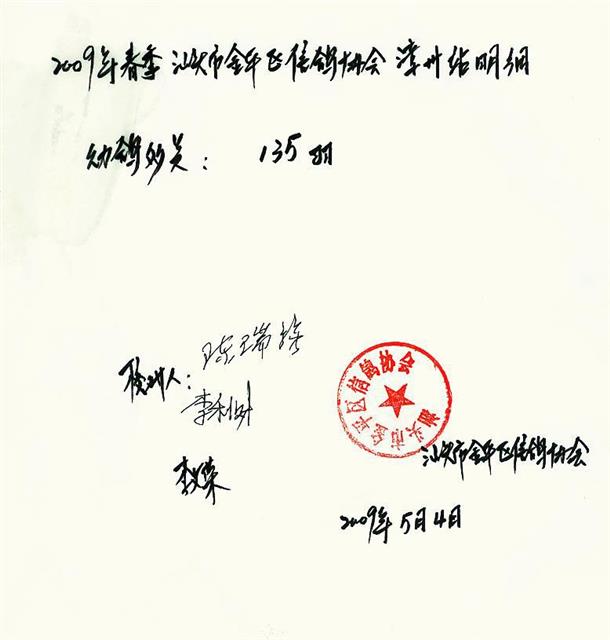 2009年春季汕头市金平区信鸽协会漳州站明细
幼鸽 : 135羽
核对人:
陈瑞
李
李荣
汕头市金平区信鸽协会
汕头市金平区信鸽协会
2009年5月4日